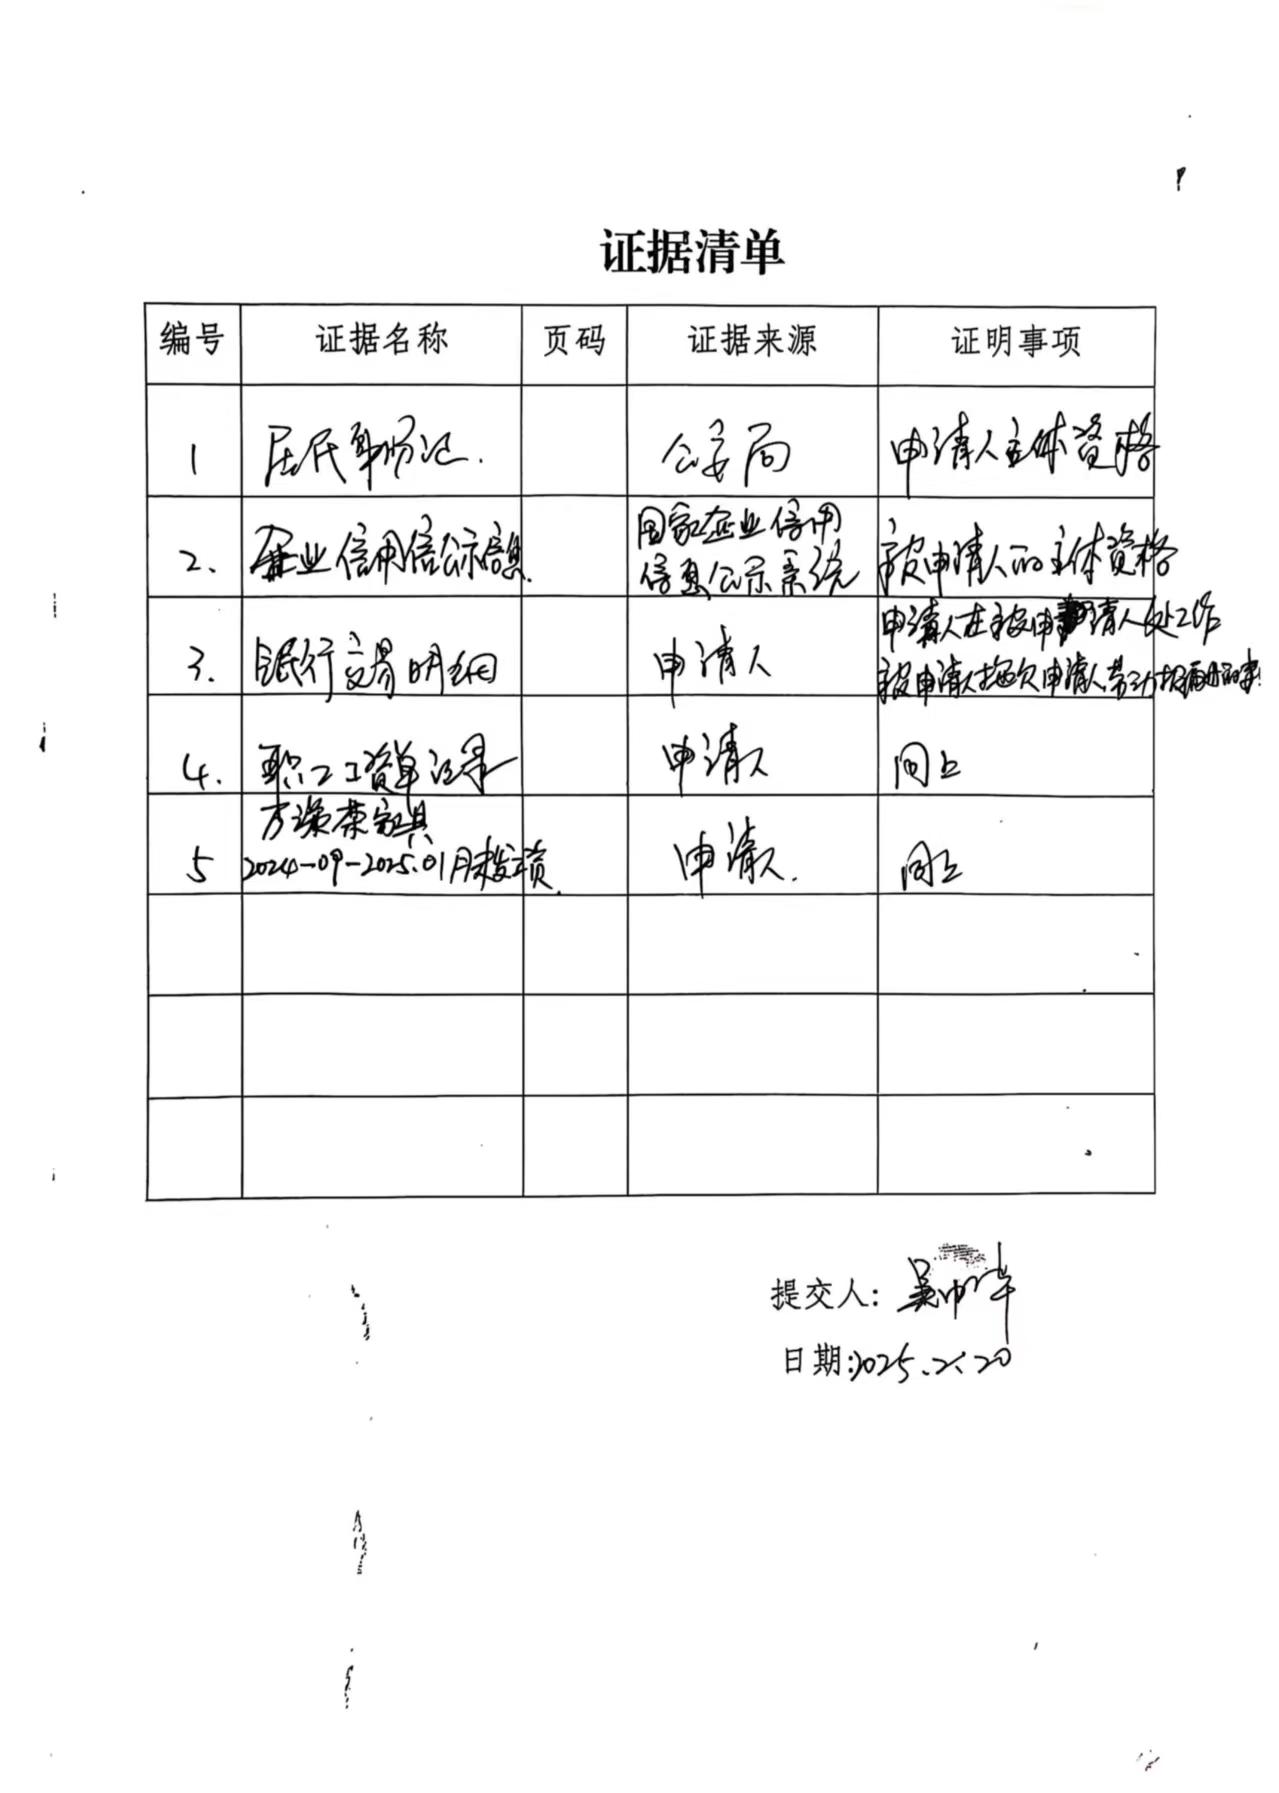 证据清单
编号 证据名称 页码 证据来源 证明事项
1 居民身份证. 公安局 申请人主体资格
2. 企业信用信公示信息. 国家企业信用
信息公示系统 被申请人的主体资格
3. 银行交易明细 申请人 申请人在被申请人处工作
被申请人拖欠申请人劳动报酬的事
4. 职工工资单记录 申请人 同上
5 家具
2024-09-2025.01月未发工资. 申请人. 同上
提交人:
日期:2025.2.20